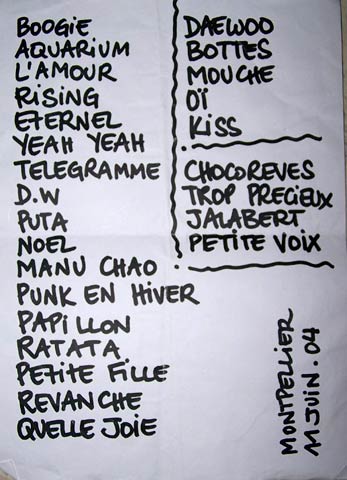 BOOGIE
AQUARIUM
L'AMOUR
RISING
ETERNEL
YEAH YEAH
TELEGRAMME
D.W
PUTA
NOEL
MANU CHAO
PUNK EN HIVER
PAPILLON
RATATA
PETITE FILLE
REVANCHE
QUELLE JOIE
DAEWOO
BOTTES
MOUCHE
OÏ
KISS
CHOCOREVES
TROP PRECIEUX
JALABERT
PETITE VOIX
MONTPELLIER
11 JUIN. 04